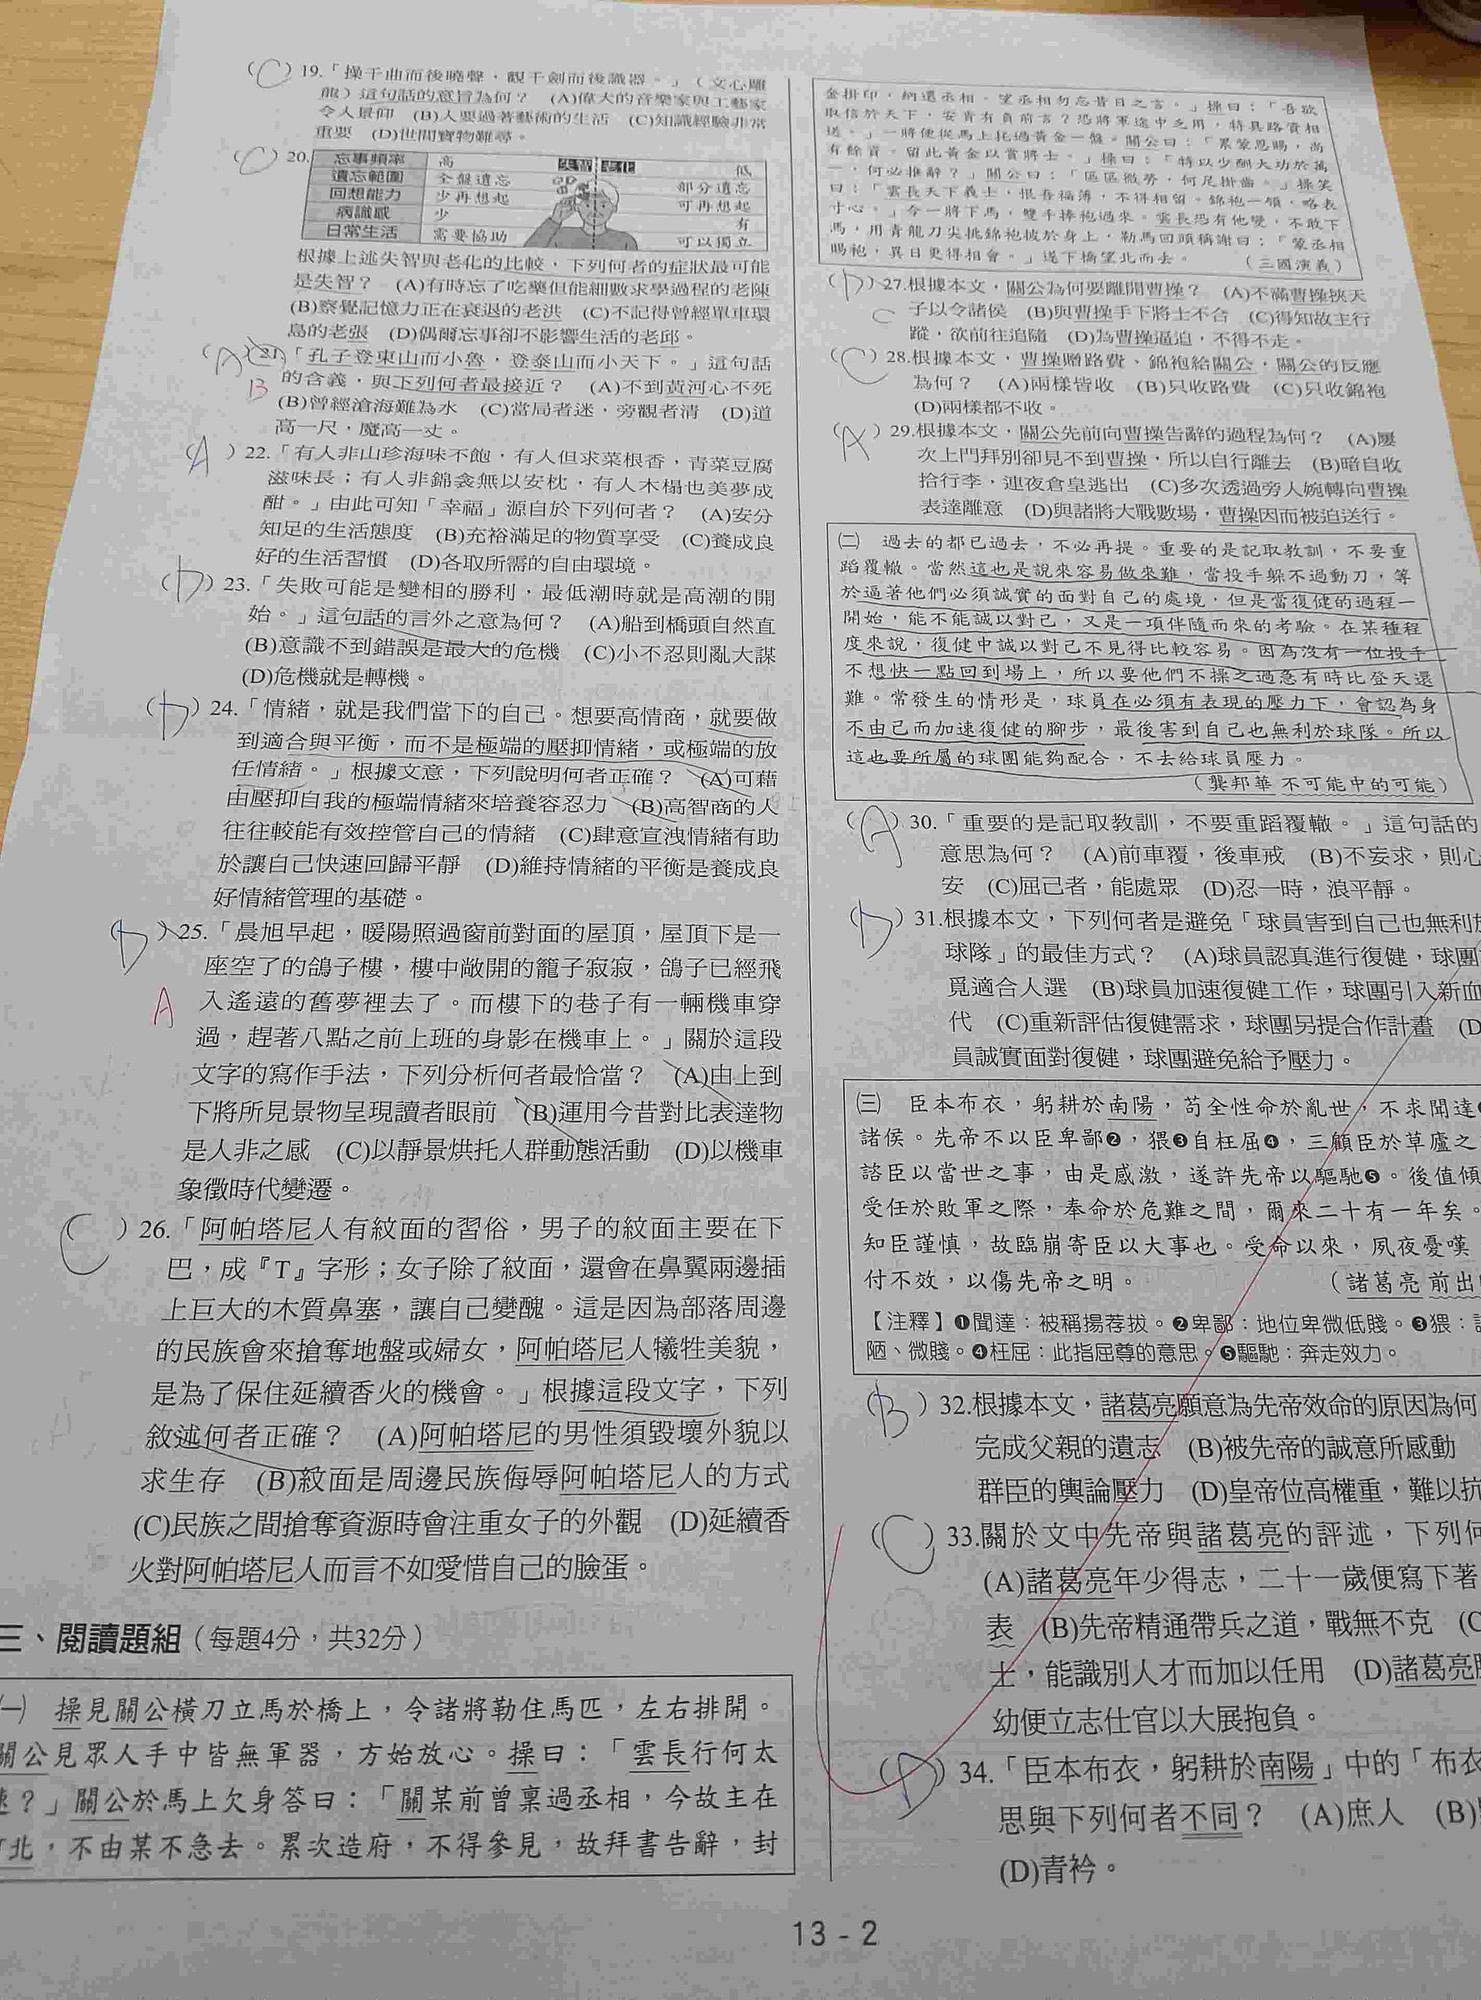 (C) 19.「操千曲而後曉聲，觀千劍而後識器。」（文心雕
龍）這句話的意旨為何？　(A)偉大的音樂家與工藝家
令人景仰　(B)人要過著藝術的生活　(C)知識經驗非常
重要　(D)世間寶物難尋。
(C) 20.
失智 老化
忘事頻率 高 低
遺忘範圍 全盤遺忘 部分遺忘
回想能力 少再想起 可再想起
病識感 少 有
日常生活 需要協助 可以獨立
根據上述失智與老化的比較，下列何者的症狀最可能
是失智？　(A)有時忘了吃藥但能細數求學過程的老陳
(B)察覺記憶力正在衰退的老洪　(C)不記得曾經單車環
島的老張　(D)偶爾忘事卻不影響生活的老邱。
(A) 21.「孔子登東山而小魯，登泰山而小天下。」這句話
B
的含義，與下列何者最接近？　(A)不到黃河心不死
(B)曾經滄海難為水　(C)當局者迷，旁觀者清　(D)道
高一尺，魔高一丈。
(A) 22.「有人非山珍海味不飽，有人但求菜根香，青菜豆腐
滋味長；有人非錦衾無以安枕，有人木榻也美夢成
酣。」由此可知「幸福」源自於下列何者？　(A)安分
知足的生活態度　(B)充裕滿足的物質享受　(C)養成良
好的生活習慣　(D)各取所需的自由環境。
(D) 23.「失敗可能是變相的勝利，最低潮時就是高潮的開
始。」這句話的言外之意為何？　(A)船到橋頭自然直
(B)意識不到錯誤是最大的危機　(C)小不忍則亂大謀
(D)危機就是轉機。
(D) 24.「情緒，就是我們當下的自己。想要高情商，就要做
到適合與平衡，而不是極端的壓抑情緒，或極端的放
任情緒。」根據文意，下列說明何者正確？　(A)可藉
由壓抑自我的極端情緒來培養容忍力　(B)高智商的人
往往較能有效控管自己的情緒　(C)肆意宣洩情緒有助
於讓自己快速回歸平靜　(D)維持情緒的平衡是養成良
好情緒管理的基礎。
(D) 25.「晨旭早起，暖陽照過窗前對面的屋頂，屋頂下是一
座空了的鴿子樓，樓中敞開的籠子寂寂，鴿子已經飛
A
入遙遠的舊夢裡去了。而樓下的巷子有一輛機車穿
過，趕著八點之前上班的身影在機車上。」關於這段
文字的寫作手法，下列分析何者最恰當？　(A)由上到
下將所見景物呈現讀者眼前　(B)運用今昔對比表達物
是人非之感　(C)以靜景烘托人群動態活動　(D)以機車
象徵時代變遷。
(C) 26.「阿帕塔尼人有紋面的習俗，男子的紋面主要在下
巴，成『T』字形；女子除了紋面，還會在鼻翼兩邊插
上巨大的木質鼻塞，讓自己變醜。這是因為部落周邊
的民族會來搶奪地盤或婦女，阿帕塔尼人犧牲美貌，
是為了保住延續香火的機會。」根據這段文字，下列
敘述何者正確？　(A)阿帕塔尼的男性須毀壞外貌以
求生存　(B)紋面是周邊民族侮辱阿帕塔尼人的方式
(C)民族之間搶奪資源時會注重女子的外觀　(D)延續香
火對阿帕塔尼人而言不如愛惜自己的臉蛋。
三、閱讀題組（每題4分，共32分）
㈠　操見關公橫刀立馬於橋上，令諸將勒住馬匹，左右排開。
關公見眾人手中皆無軍器，方始放心。操曰：「雲長行何太
速？」關公於馬上欠身答曰：「關某前曾稟過丞相，今故主在
河北，不由某不急去。累次造府，不得參見，故拜書告辭，封
金掛印，納還丞相。望丞相勿忘昔日之言。」操曰：「吾欲
取信於天下，安肯有負前言？恐將軍途中乏用，特具路資相
送。」一將便從馬上托過黃金一盤。關公曰：「累蒙恩賜，尚
有餘資。留此黃金以賞將士。」操曰：「特以少酬大功於萬
一，何必推辭？」關公曰：「區區微勞，何足掛齒。」操笑
曰：「雲長天下義士，恨吾福薄，不得相留。錦袍一領，略表
寸心。」令一將下馬，雙手捧袍過來。雲長恐有他變，不敢下
馬，用青龍刀尖挑錦袍披於身上，勒馬回頭稱謝曰：「蒙丞相
賜袍，異日更得相會。」遂下橋望北而去。（三國演義）
(D) 27.根據本文，關公為何要離開曹操？　(A)不滿曹操挾天
C
子以令諸侯　(B)與曹操手下將士不合　(C)得知故主行
蹤，欲前往追隨　(D)為曹操逼迫，不得不走。
(C) 28.根據本文，曹操贈路費、錦袍給關公，關公的反應
為何？　(A)兩樣皆收　(B)只收路費　(C)只收錦袍
(D)兩樣都不收。
(A) 29.根據本文，關公先前向曹操告辭的過程為何？　(A)屢
次上門拜別卻見不到曹操，所以自行離去　(B)暗自收
拾行李，連夜倉皇逃出　(C)多次透過旁人婉轉向曹操
表達離意　(D)與諸將大戰數場，曹操因而被迫送行。
㈡　過去的都已過去，不必再提。重要的是記取教訓，不要重
蹈覆轍。當然這也是說來容易做來難，當投手躲不過動刀，等
於逼著他們必須誠實的面對自己的處境，但是當復健的過程一
開始，能不能誠以對己，又是一項伴隨而來的考驗。在某種程
度來說，復健中誠以對己不見得比較容易。因為沒有一位投手
不想快一點回到場上，所以要他們不操之過急有時比登天還
難。常發生的情形是，球員在必須有表現的壓力下，會認為身
不由己而加速復健的腳步，最後害到自己也無利於球隊。所以
這也要所屬的球團能夠配合，不去給球員壓力。
（龔邦華 不可能中的可能）
(A) 30.「重要的是記取教訓，不要重蹈覆轍。」這句話的
意思為何？　(A)前車覆，後車戒　(B)不妄求，則心
安　(C)屈己者，能處眾　(D)忍一時，浪平靜。
(D) 31.根據本文，下列何者是避免「球員害到自己也無利於
球隊」的最佳方式？　(A)球員認真進行復健，球團
覓適合人選　(B)球員加速復健工作，球團引入新血
代　(C)重新評估復健需求，球團另提合作計畫　(D
員誠實面對復健，球團避免給予壓力。
㈢　臣本布衣，躬耕於南陽，苟全性命於亂世，不求聞達❶
諸侯。先帝不以臣卑鄙❷，猥❸自枉屈❹，三顧臣於草廬之
諮臣以當世之事，由是感激，遂許先帝以驅馳❺。後值傾
受任於敗軍之際，奉命於危難之間，爾來二十有一年矣。
知臣謹慎，故臨崩寄臣以大事也。受命以來，夙夜憂嘆
付不效，以傷先帝之明。（諸葛亮 前出
【注釋】❶聞達：被稱揚荐拔。❷卑鄙：地位卑微低賤。❸猥：
陋、微賤。❹枉屈：此指屈尊的意思。❺驅馳：奔走效力。
(B) 32.根據本文，諸葛亮願意為先帝效命的原因為何
完成父親的遺志　(B)被先帝的誠意所感動
群臣的輿論壓力　(D)皇帝位高權重，難以抗
(C) 33.關於文中先帝與諸葛亮的評述，下列何
(A)諸葛亮年少得志，二十一歲便寫下著
表　(B)先帝精通帶兵之道，戰無不克　(C
士，能識別人才而加以任用　(D)諸葛亮
幼便立志仕官以大展抱負。
(D) 34.「臣本布衣，躬耕於南陽」中的「布衣
思與下列何者不同？　(A)庶人　(B)
(D)青衿。
13 - 2